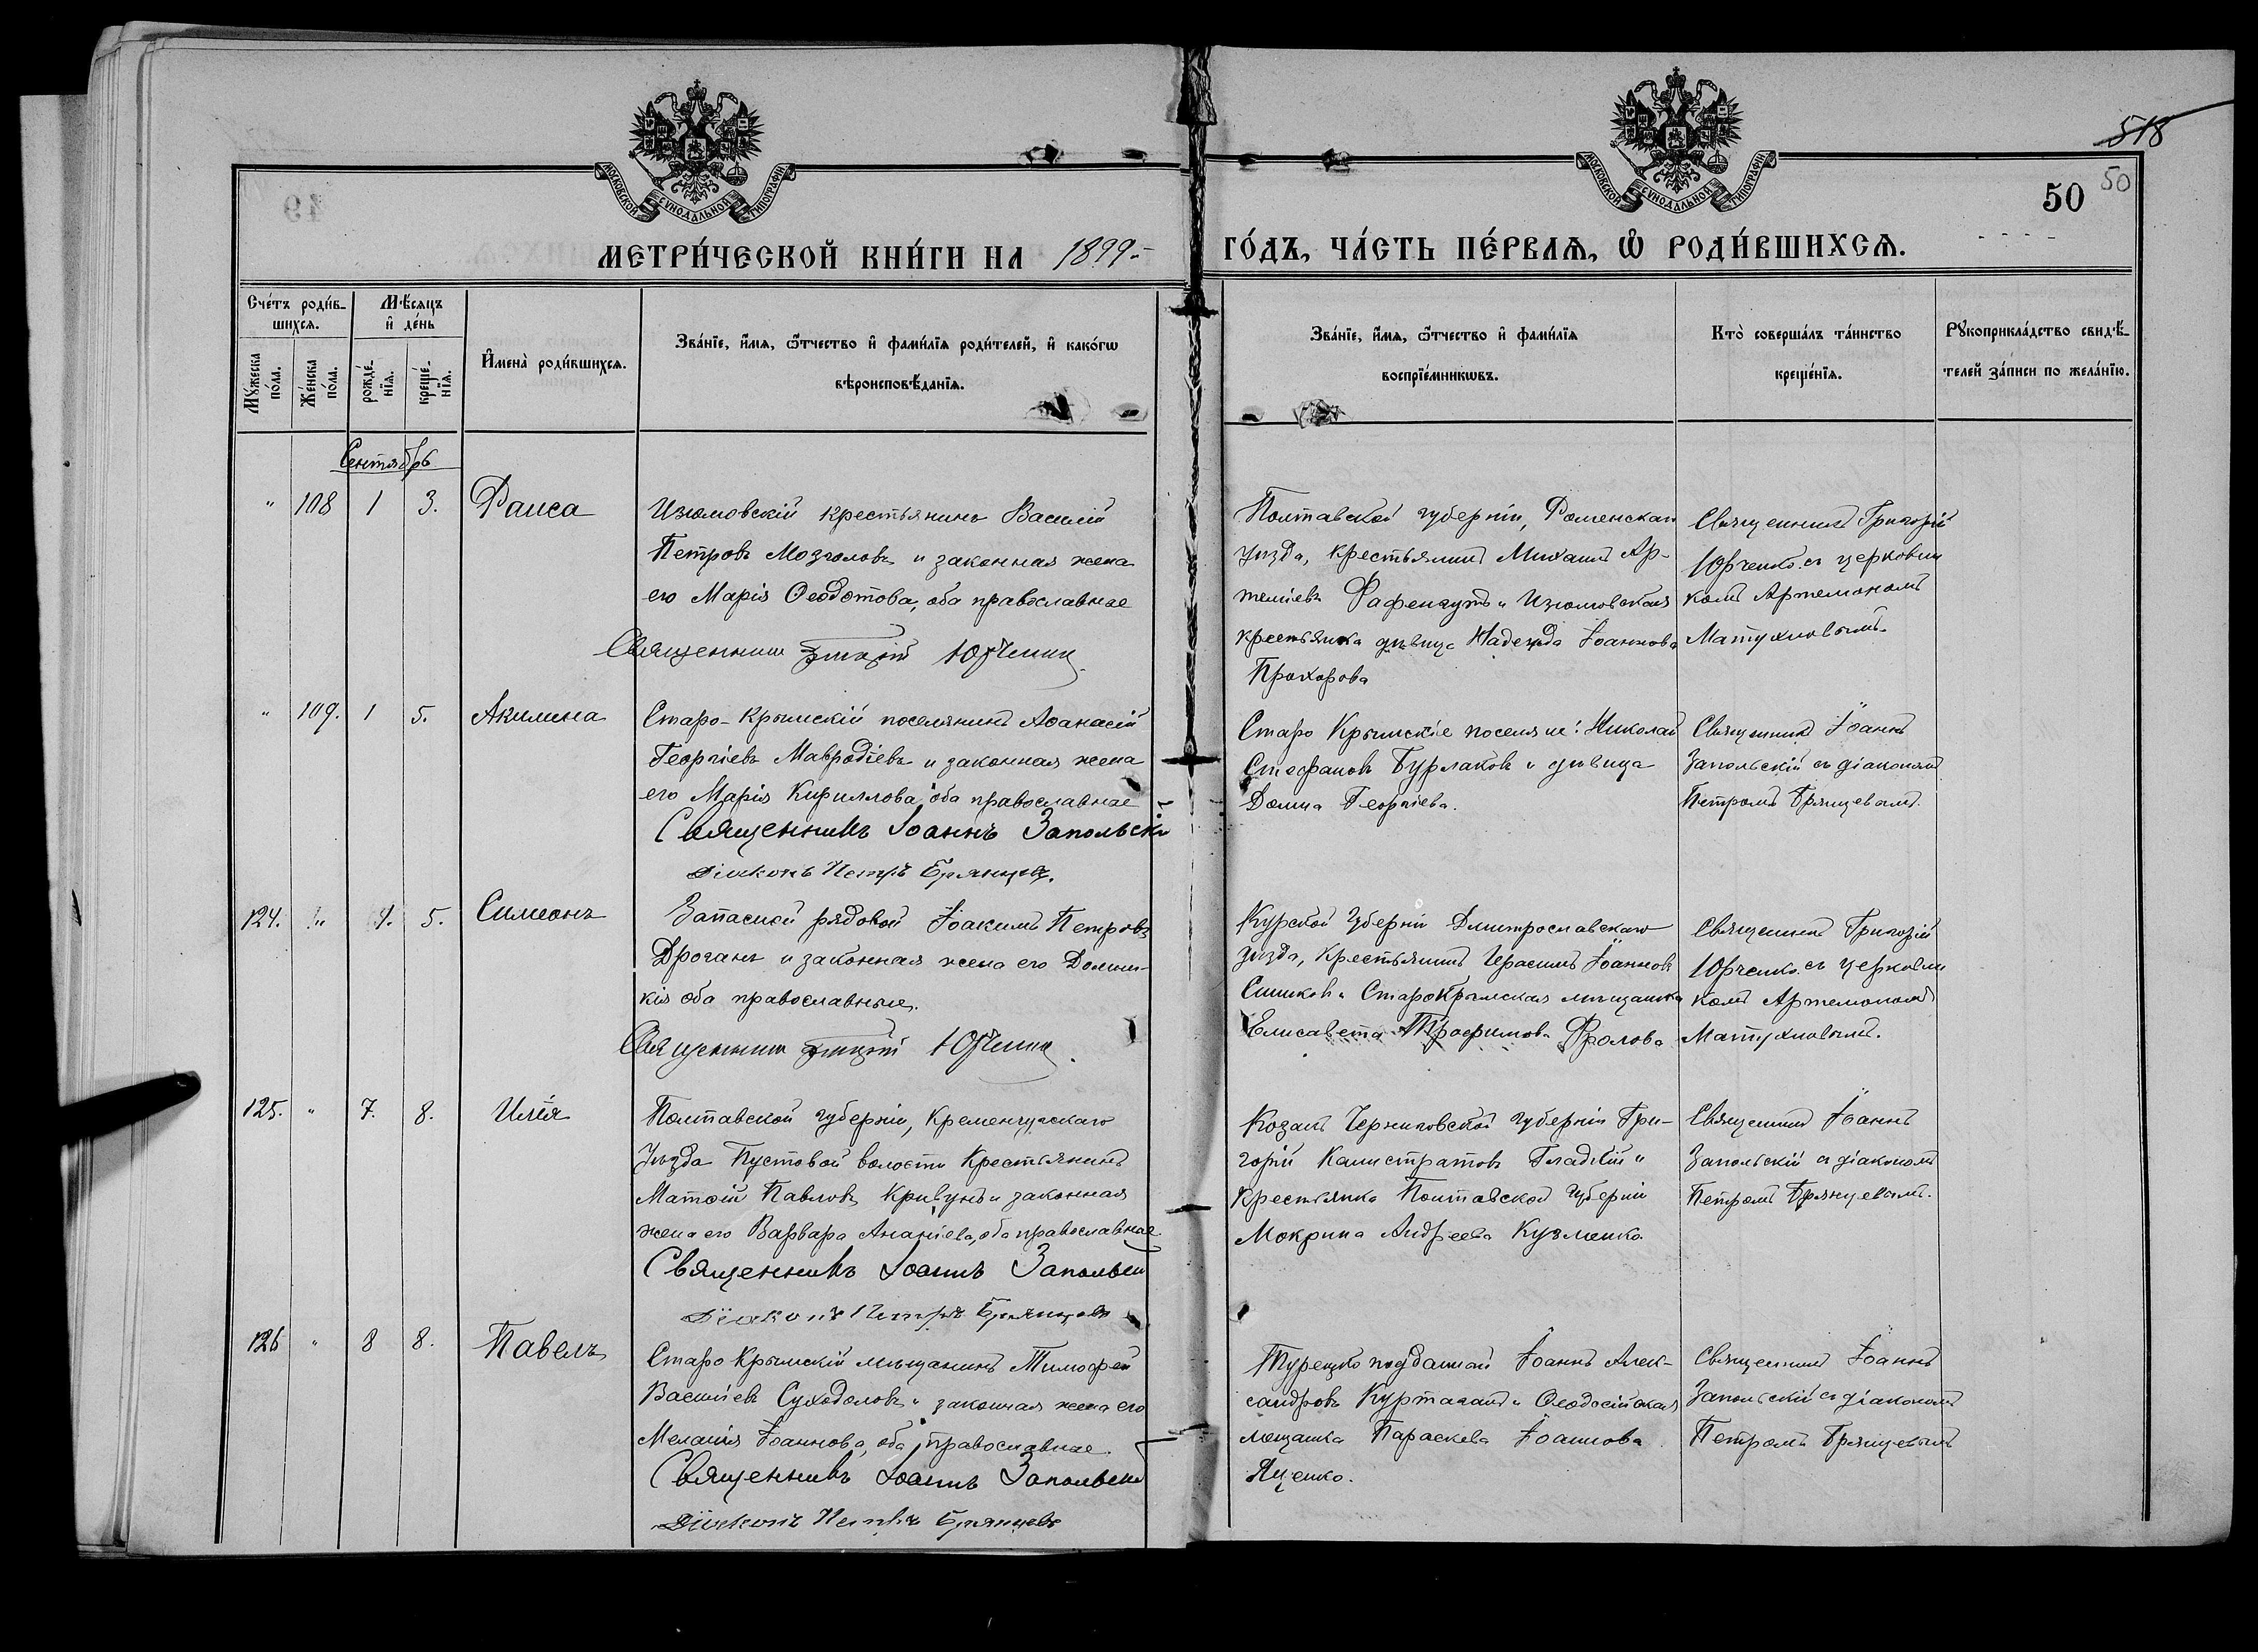 518
50
50
МОСКОВСКОЙ СѴНОДАЛЬНОЙ ТИПОГРАФІИ.
МОСКОВСКОЙ СѴНОДАЛЬНОЙ ТИПОГРАФІИ.
МЕТРИ́ЧЕСКОЙ КНИ́ГИ НА 1899.-
ГО́ДЪ, ЧА́СТЬ ПЕ́РВАѦ, Ѽ РОДИ́ВШИХСѦ.
Сче́тъ роди́в-
шихсѧ.
Мѣ́сѧцъ
и҆ де́нь
Мꙋ́жеска
по́ла.
Же́нска
по́ла.
рожде́-
нїѧ.
креще́-
нїѧ.
И҆мена̀ роди́вшихсѧ.
Зва́нїе, и҆́мѧ, ѻ҆́тчество и҆ фами́лїѧ роди́телей, и҆ како́гѡ
вѣроисповѣ́данїѧ.
Зва́нїе, и҆́мѧ, ѻ҆́тчество и҆ фами́лїѧ
воспрїе́мникѡвъ.
Кто̀ соверша́лъ та́инство
креще́нїѧ.
Рꙋкоприкла́дство свидѣ́-
телей за́писи по жела́нїю.
Сентябрь
" 108 1 3. Раиса
Изюмовскій крестьянинъ Василій
Петровъ Мозголовъ и законная жена
его Марія Ѳеодотова, оба православные
Священникъ Григорій Юрченко
Полтавской губерніи, Роменскаго
уѣзда, крестьянинъ Михаилъ Ар-
теміевъ и Изюмовская
крестьянка дѣвица Надежда Іоаннова
Прохорова
Священникъ Григорій
Юрченко съ церковни
комъ Артемономъ
Матухновымъ.
" 109. 1 5. Акилина
Старо-Крымскій поселянинъ Аѳанасій
Георгіевъ Мавродіевъ и законная жена
его Марія Кириллова, оба православные
Священникъ Іоаннъ Запольскій
Діаконъ Петръ Брянцевъ.
Старо Крымскіе поселяне: Николай
Стефановъ Бурлаковъ и дѣвица
Домна Георгіева.
Священникъ Іоаннъ
Запольскій съ діакономъ
Петромъ Брянцевымъ.
124. " 1. 5. Симеонъ
Запасной рядовой Іоакимъ Петровъ
Дроганъ и законная жена его Домни-
кія оба православные.
Священникъ Григорій Юрченко.
Курской Губерніи Дмитрославскаго
уѣзда, Крестьянинъ Герасимъ Іоанновъ
и СтароКрымская мѣщанка
Елисавета Трофимова Фролова
Священникъ Григорій
Юрченко съ церковни
комъ Артемономъ
Матухновымъ.
125. " 7. 8. Илія
Полтавской губерніи, Кременчугскаго
Уѣзда Пустовой волости Крестьянинъ
Матѳій Павловъ Кривунъ и законная
жена его Варвара Ананіева, оба православные
Священникъ Іоаннъ Запольскій
Діаконъ Петръ Брянцевъ
Козакъ Черниговской губерніи Гри-
горій Калистратовъ Гладкій и
крестьянка Полтавской Губерніи
Мокрина Андреева Кузменко.
Священникъ Іоаннъ
Запольскій съ діакономъ
Петромъ Брянцевымъ.
126 " 8 8. Павелъ
Старо Крымскій мѣщанинъ Тимофей
Васильевъ Суходоловъ и законная жена его
Меланія Іоаннова, оба православные.
Священникъ Іоаннъ Запольскій
Діаконъ Петръ Брянцевъ
Турецко подданный Іоаннъ Алек-
сандровъ и Ѳеодосійская
мѣщанка Параскева Іоаннова
Яценко.
Священникъ Іоаннъ
Запольскій съ діакономъ
Петромъ Брянцевымъ